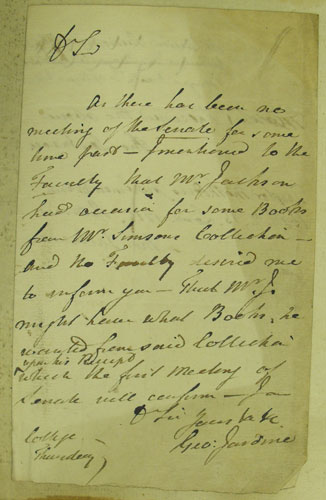 Dr Sir
As there has been no
meeting of the Senate for some
time past — I mentioned to the
Faculty that Mr. Jackson
had occasion for some Books
from Mr. Simsons Collection —
and the Faculty desired me
to inform you — That Mr. J.
might have what Books he
wanted from said Collection
upon his Receipt
which the first Meeting of
Senate will confirm — I am
Dr Sir Yours &c &c
Geo: Jardine
College —
Thursday